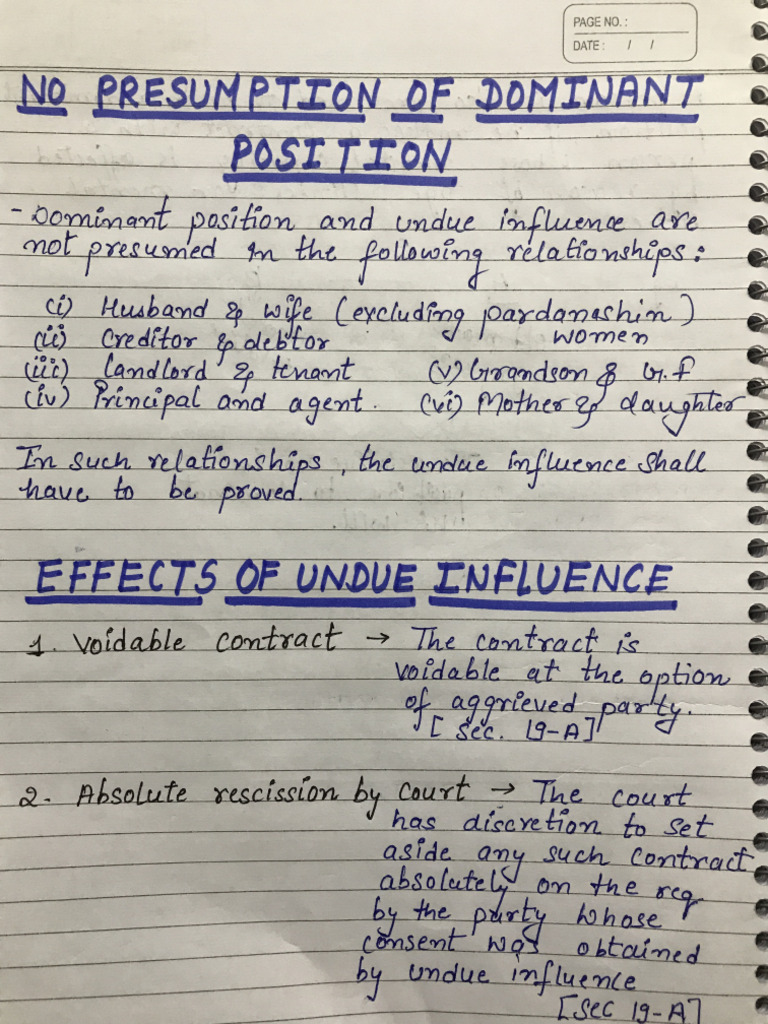 PAGE NO.:
DATE: / /
NO PRESUMPTION OF DOMINANT
POSITION
- Dominant position and undue influence are
not presumed in the following relationships:
(i) Husband & wife (excluding pardanashin)
women
(ii) Creditor & debtor
(iii) Landlord & tenant (v) Grandson & G.f
(iv) Principal and agent. (vi) Mother & daughter
In such relationships, the undue influence shall
have to be proved.
EFFECTS OF UNDUE INFLUENCE
1. Voidable contract → The contract is
voidable at the option
of aggrieved party.
[Sec. 19-A]
2. Absolute rescission by court → The court
has discretion to set
aside any such contract
absolutely on the req
by the party whose
consent was obtained
by undue influence
[Sec 19-A]